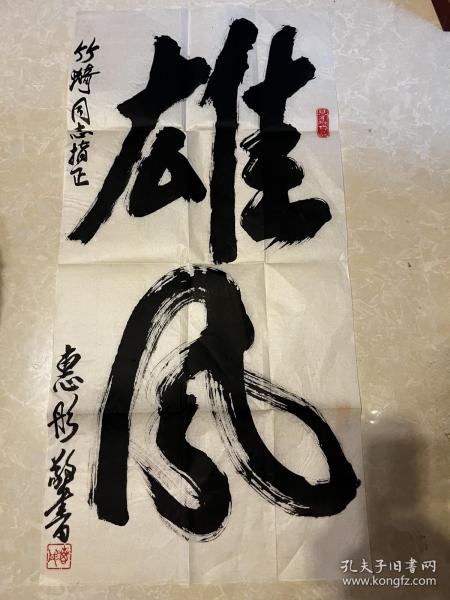 雄风
竹琦同志指正
惠彤敬书
孔夫子旧书网
www.kongfz.com